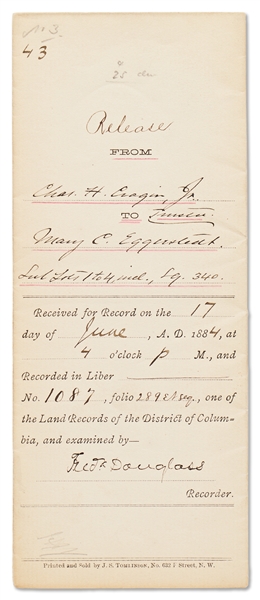 No 3.
43
25 du
Release
FROM
Chas. H. Cragin, Jr.
TO Trustee
Mary C. Eggerstedt.
Sub Lots 1 to 4, incl., Sq. 340.
Received for Record on the 17
day of June, A. D. 1884, at
4 o'clock P M., and
Recorded in Liber
No. 1087, folio 289 et seq., one of
the Land Records of the District of Colum-
bia, and examined by—
Fredk Douglass
Recorder.
Printed and Sold by J. S. TOMLINSON, No. 632 F Street, N. W.